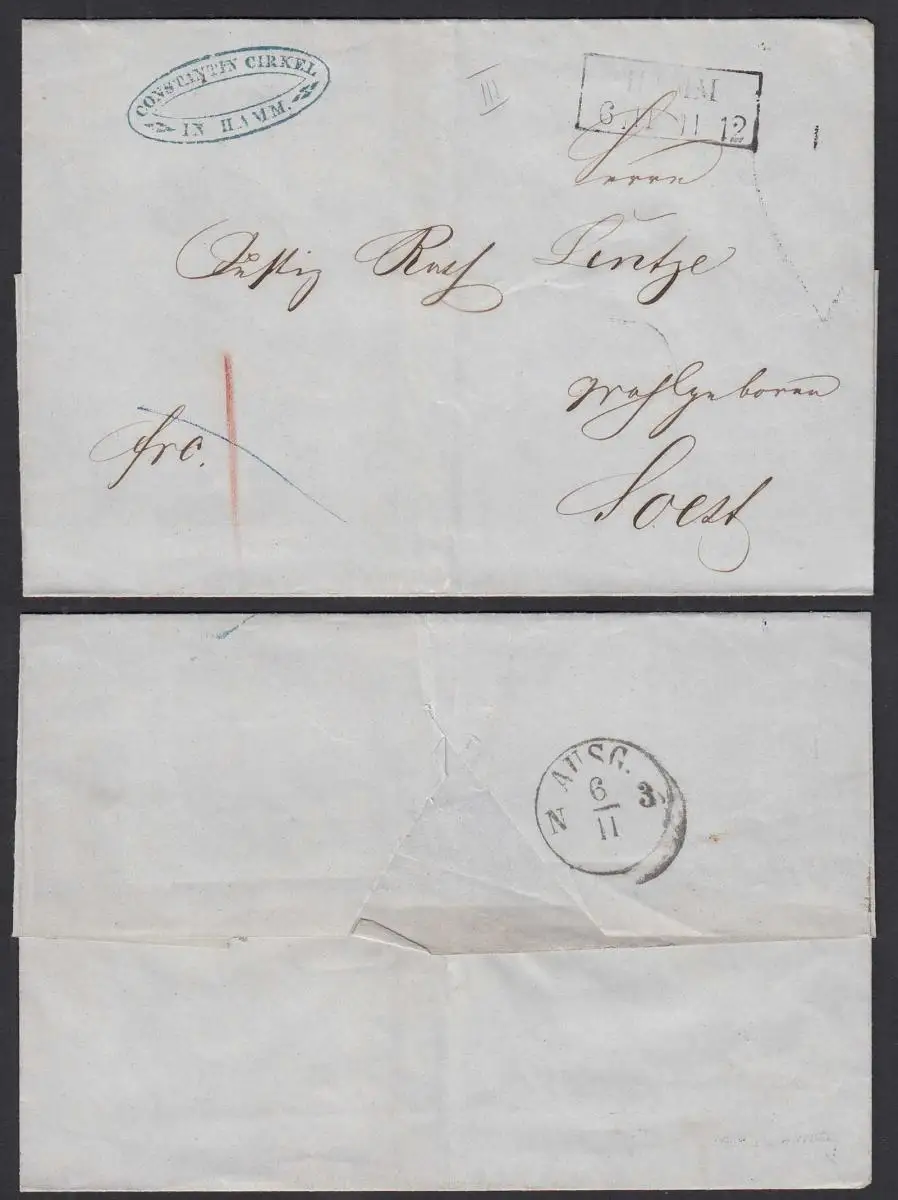 CONSTANTIN CIRKEL
IN HAMM.
III
HAMM
6. 11 11 12
Herrn
Justiz Rath Lentze
Wohlgeboren
frc.
Soest
AUSG.
N 3
6
11